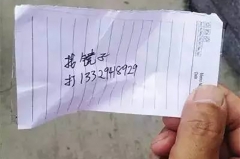 找镜子
打13329418929